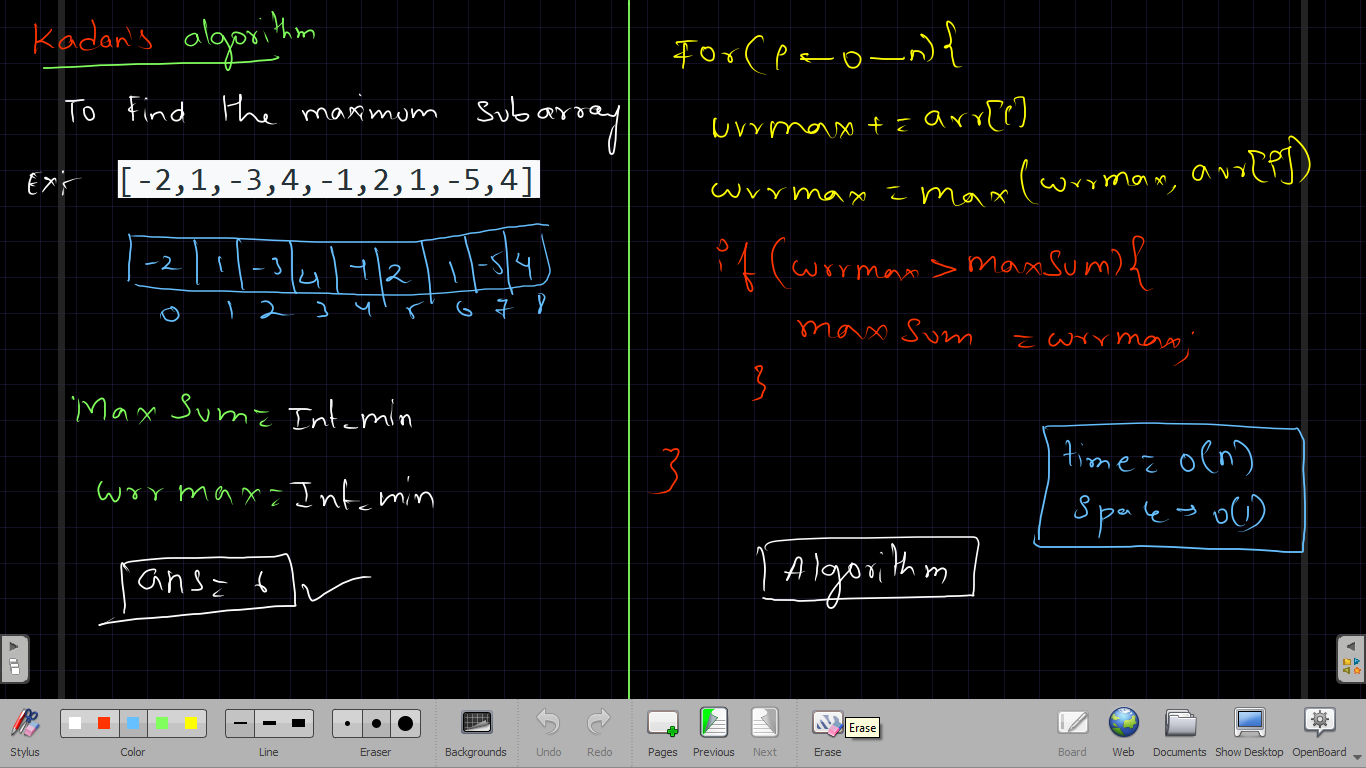 Kadan's algorithm
To find the maximum subarray
Ex:-
[-2,1,-3,4,-1,2,1,-5,4]
-2 1 -3 4 -1 2 1 -5 4
0 1 2 3 4 5 6 7 8
Max Sum = Int_min
currmax = Int_min
ans = 6
For(i ← 0 — n){
currmax + = arr[i]
currmax = max(currmax, arr[i])
if (currmax > maxSum){
max Sum = currmax;
}
}
time = O(n)
Space → O(1)
Algorithm
Stylus
Color
Line
Eraser
Backgrounds
Undo
Redo
Pages
Previous
Next
Erase
Erase
Board
Web
Documents
Show Desktop
OpenBoard